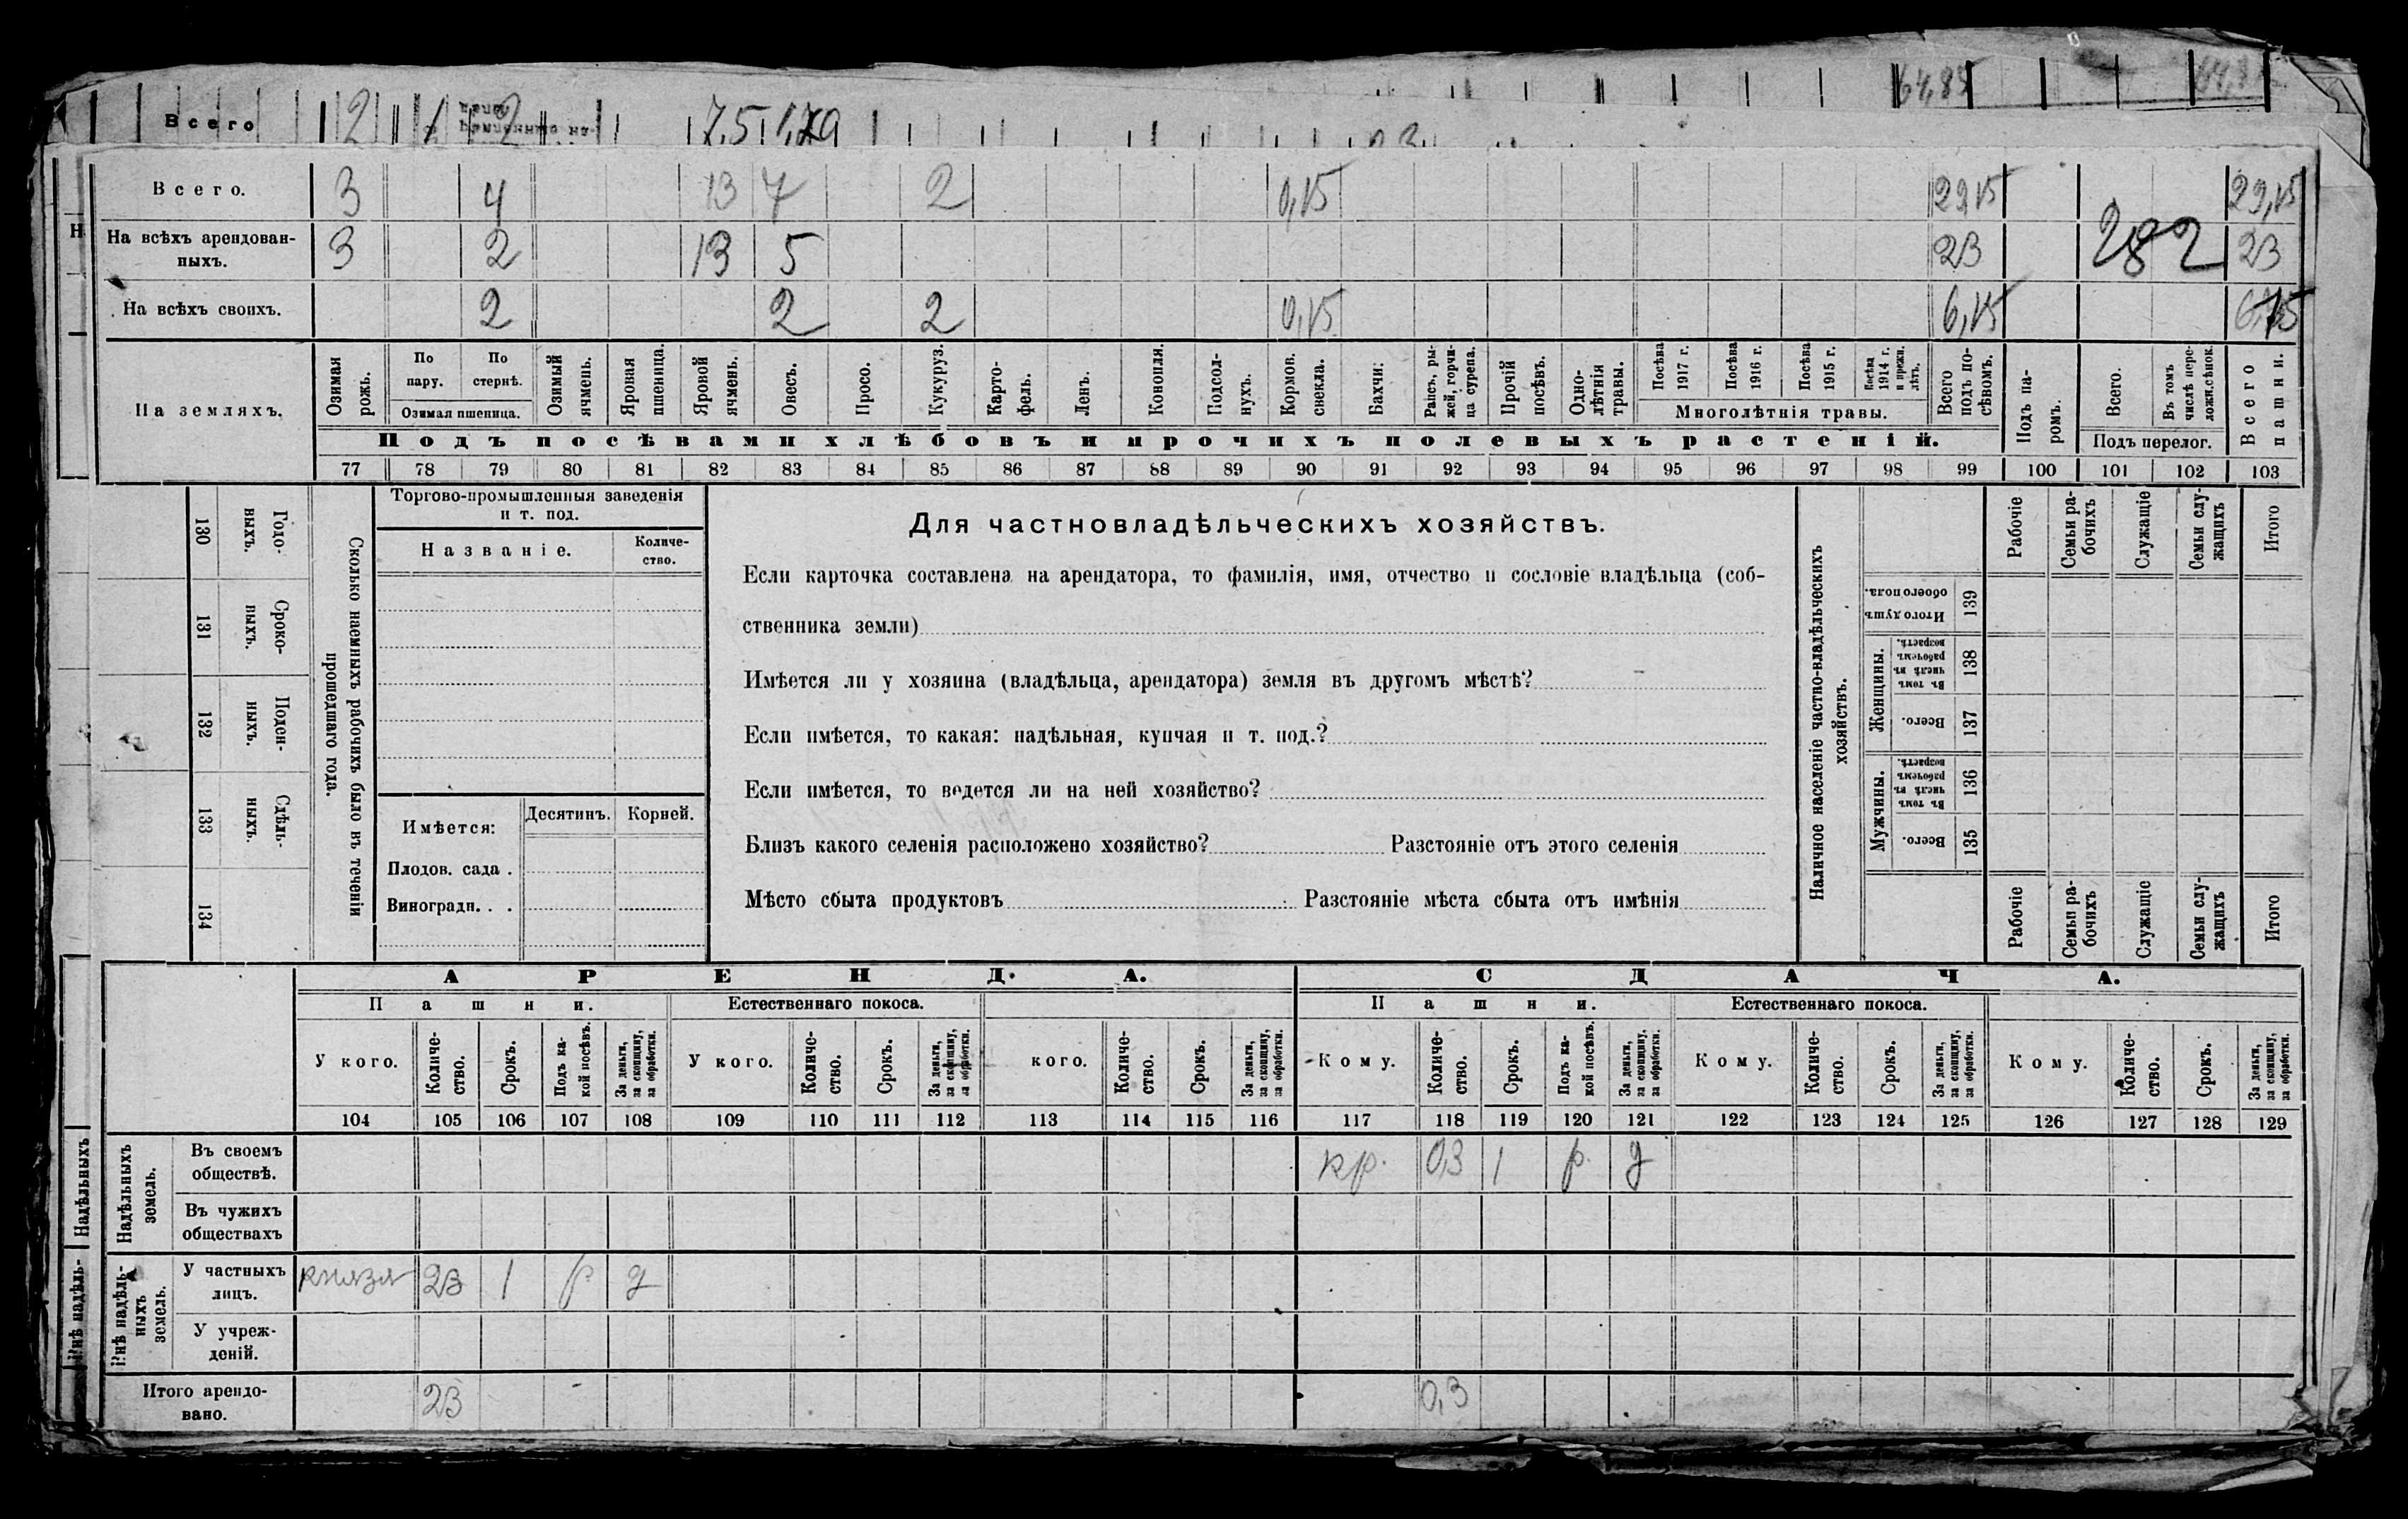 64,85 64,8
Всего 2 1 2 7,5 1,79
Всего. 3 4 13 7 2 0,15 29,15 29,15
Н
На всѣхъ арендован-
ныхъ. 3 2 13 5 23 282 23
На всѣхъ своихъ. 2 2 2 0,15 6,15 6,15
На земляхъ.
Озимая рожь.
По пару.
По стернѣ.
Озимая пшеница.
Озимый ячмень.
Яровая пшеница.
Яровой ячмень.
Овесъ.
Просо.
Кукуруз.
Карто-
фель.
Ленъ.
Конопля.
Подсол-
нухъ.
Кормов. свекла.
Бахчи:
Рапсъ, ры-
жей, горчи-
ца сурепа.
Прочій посѣвъ.
Одно-
лѣтнія травы.
Посѣва 1917 г.
Посѣва 1916 г.
Посѣва 1915 г.
Посѣва 1914 г. и прежн. лѣтъ.
Многолѣтнія травы.
Всего подъ по-
сѣвомъ.
Подъ посѣвами хлѣбовъ и прочихъ полевыхъ растеній.
Подъ па-
ромъ.
Всего.
Въ томъ числѣ пере-
ложн.сѣнок.
Подъ перелог.
Всего пашни.
77 78 79 80 81 82 83 84 85 86 87 88 89 90 91 92 93 94 95 96 97 98 99 100 101 102 103
130 Годо-
выхъ.
131 Сроко-
выхъ.
132 Поден-
ныхъ.
133 Сдѣль-
ныхъ.
134
Сколько наемныхъ рабочихъ было въ теченіи
прошедшаго года.
Торгово-промышленныя заведенія
и т. под.
Названіе.
Количе-
ство.
Имѣется: Десятинъ. Корней.
Плодов. сада .
Виноградн. . .
Для частновладѣльческихъ хозяйствъ.
Если карточка составлена на арендатора, то фамилія, имя, отчество и сословіе владѣльца (соб-
ственника земли)
Имѣется ли у хозяина (владѣльца, арендатора) земля въ другомъ мѣстѣ?
Если имѣется, то какая: надѣльная, купчая и т. под.?
Если имѣется, то ведется ли на ней хозяйство?
Близъ какого селенія расположено хозяйство? Разстояніе отъ этого селенія
Мѣсто сбыта продуктовъ Разстояніе мѣста сбыта отъ имѣнія
Наличное населеніе частно-владѣльческихъ
хозяйствъ.
Рабочіе
Семьи ра-
бочихъ
Служащіе
Семьи слу-
жащихъ
Итого
Итого душъ обоего пола. 139
Женщины.
Въ томъ числѣ въ рабочемъ возрастѣ. 138
Всего. 137
Мужчины.
Въ томъ числѣ въ рабочемъ возрастѣ. 136
Всего. 135
Рабочіе
Семьи ра-
бочихъ
Служащіе
Семьи слу-
жащихъ
Итого
АРЕНДА.
СДАЧА.
Пашни.
Естественнаго покоса.
Пашни.
Естественнаго покоса.
У кого.
Количе-
ство.
Срокъ.
Подъ ка-
кой посѣвъ.
За деньги, за скопщину, за обработки.
У кого.
Количе-
ство.
Срокъ.
За деньги, за скопщину, за обработки.
кого.
Количе-
ство.
Срокъ.
За деньги, за скопщину, за обработки.
Кому.
Количе-
ство.
Срокъ.
Подъ ка-
кой посѣвъ.
За деньги, за скопщину, за обработки.
Кому.
Количе-
ство.
Срокъ.
За деньги, за скопщину, за обработки.
Кому.
Количе-
ство.
Срокъ.
За деньги, за скопщину, за обработки.
104 105 106 107 108 109 110 111 112 113 114 115 116 117 118 119 120 121 122 123 124 125 126 127 128 129
Надѣльныхъ
Надѣльныхъ
земель.
Въ своемъ
обществѣ. кр. 0,3 1 р. д
Въ чужихъ
обществахъ
Внѣ надѣль-
Внѣ надѣль-
ныхъ
земель.
У частныхъ
лицъ. князя 23 1 р д
У учреж-
деній.
Итого арендо-
вано. 23 0,3